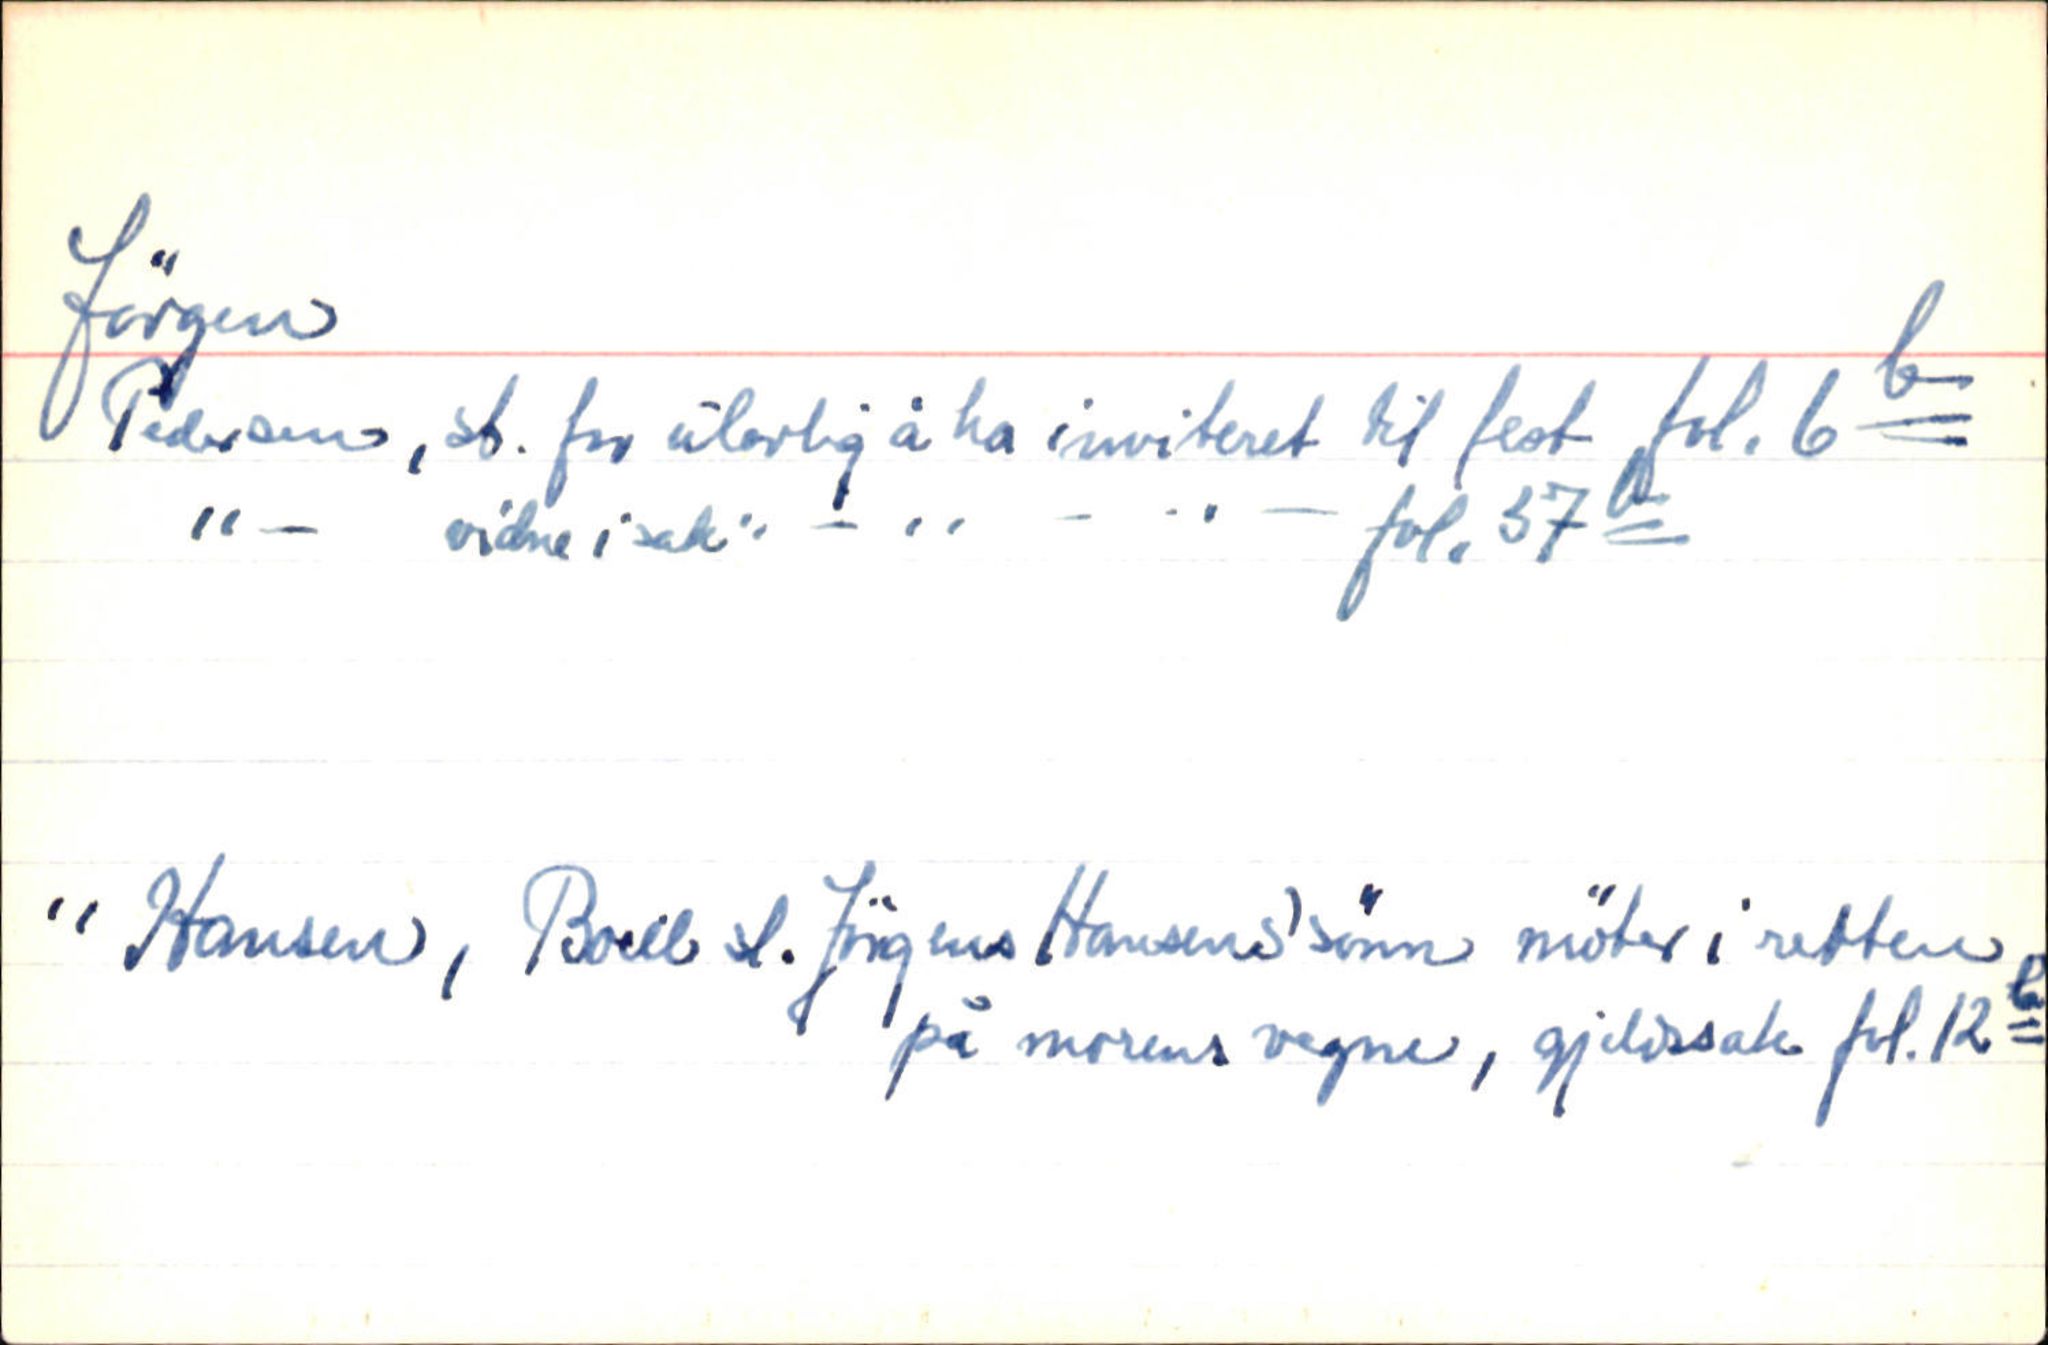 Jörgen
Pedersen, st. for ulovlig å ha inviteret til fest fol. 6 b
" — vidne i sak " — " — " — fol. 37 b
" Hansen, Boell sl. Jörgens Hansens) sönn möter i retten
på morens vegne, gjeldssak fol. 12 b